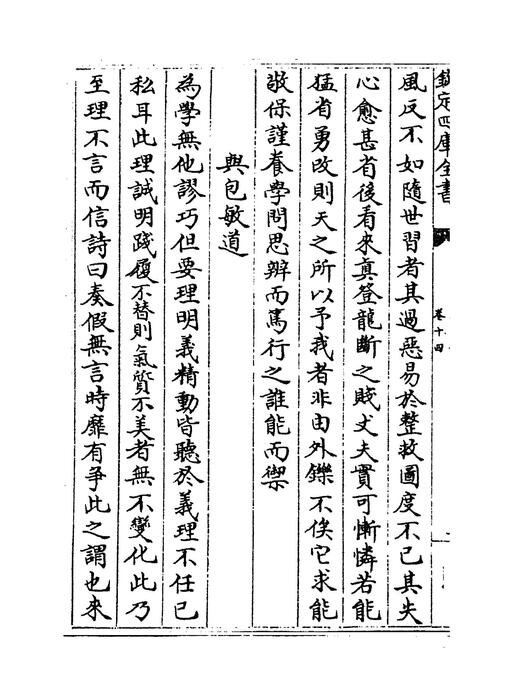 欽定四庫全書
卷十四
風反不如隨世習者其過惡易於整救圖度不已其失
心愈甚省後看來真登龍斷之賤丈夫實可慚憐若能
猛省勇改則天之所以予我者非由外鑠不俟它求能
敬保謹養學問思辨而篤行之誰能而禦
與包敏道
為學無他謬巧但要理明義精動皆聽於義理不任己
私耳此理誠明踐履不替則氣質不美者無不變化此乃
至理不言而信詩曰奏假無言時靡有爭此之謂也來